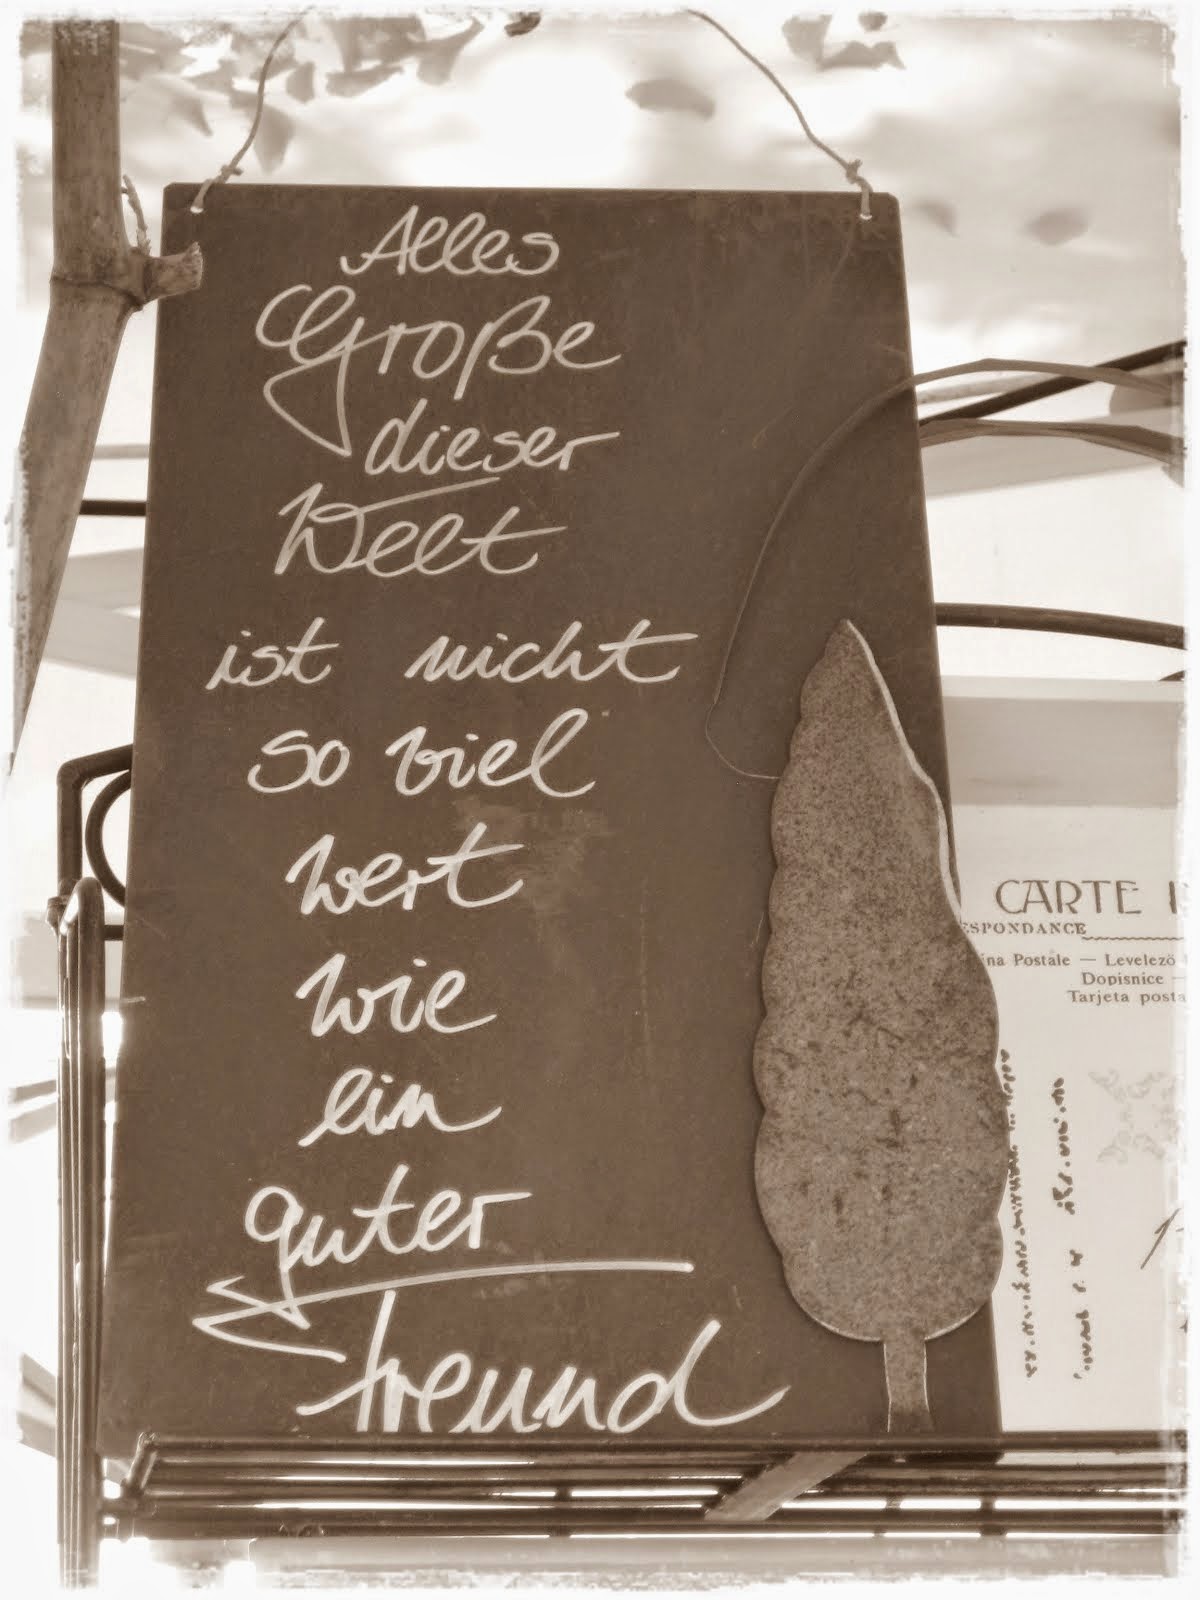 Alles
Große
dieser
Welt
ist nicht
so viel
wert
wie
ein
guter
Freund
CARTE
ESPONDANCE
ina Postale — Levelezö
Dopisnice —
Tarjeta posta